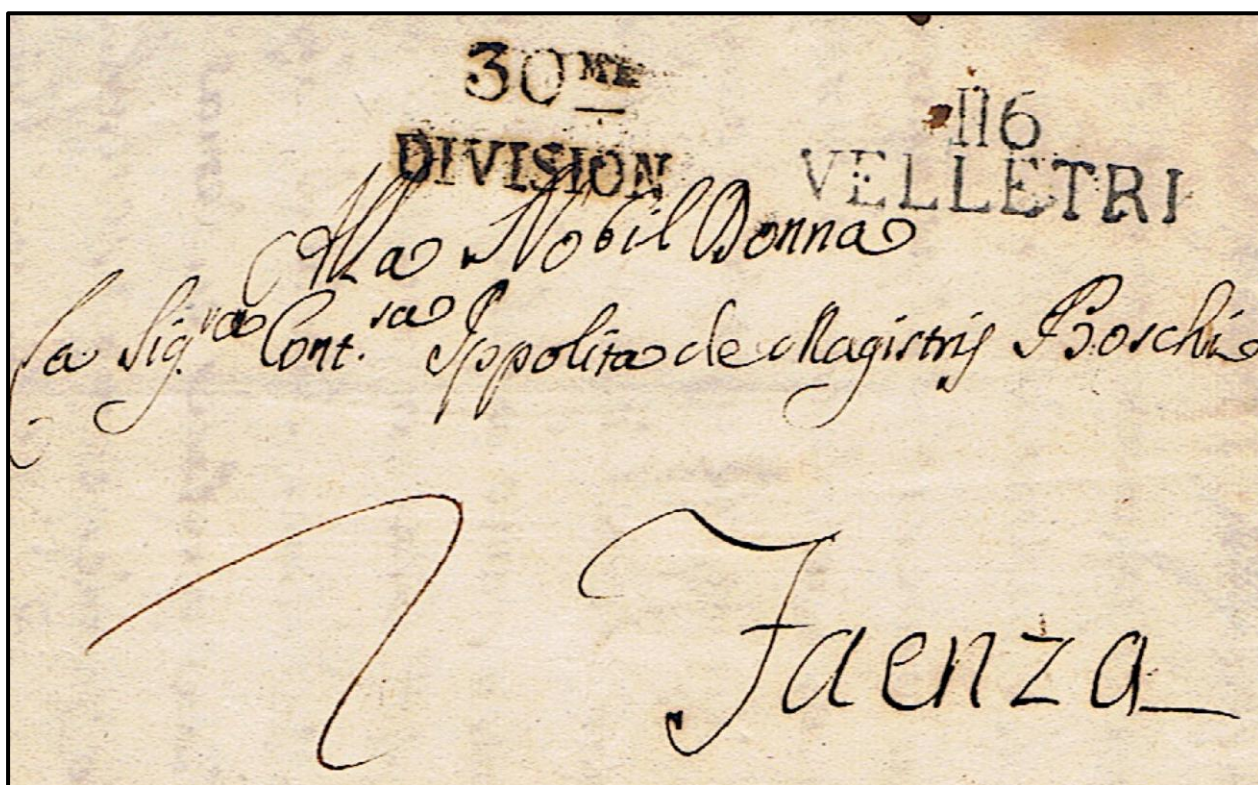 30ME
DIVISION
116
VELLETRI
Alla Nobil Donna
La Sig.ra Cont.sa Ippolita de Magistris Boschi
Faenza